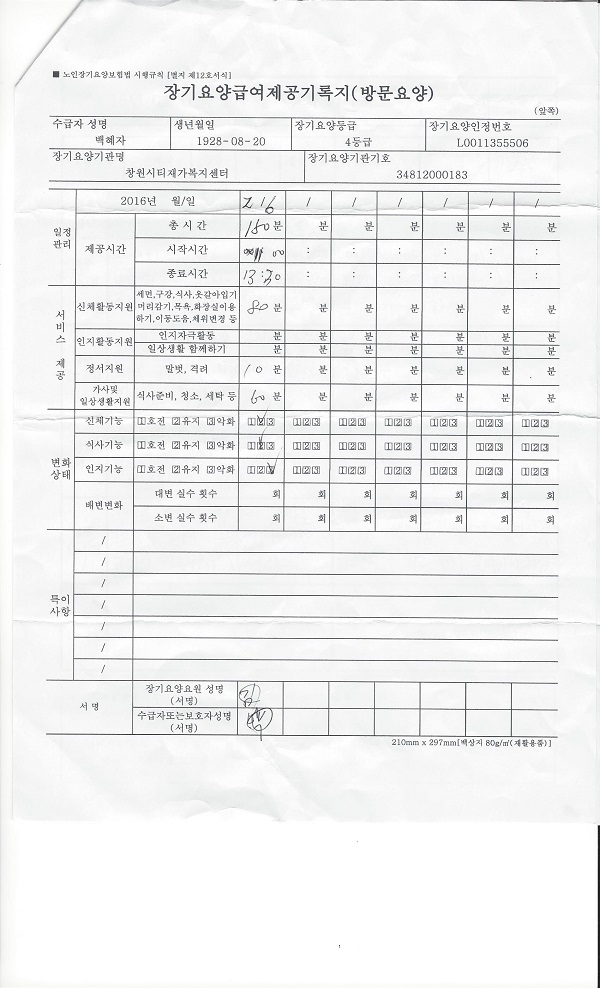 ■ 노인장기요양보험법 시행규칙 [별지 제12호서식]
장기요양급여제공기록지(방문요양)
(앞쪽)
수급자 성명 생년월일 장기요양등급 장기요양인정번호
백혜자 1928-08-20 4등급 L0011355506
장기요양기관명 장기요양기관기호
창원시티재가복지센터 34812000183
일정 관리 2016년 월/일 2/6 / / / / / /
제공시간 총 시 간 150분 분 분 분 분 분 분
시작시간 00 : : : : : :
종료시간 13:30 : : : : : :
서비스 제공 신체활동지원 세면,구강,식사,옷갈아입기
머리감기,목욕,화장실이용
하기,이동도움,체위변경 등 80분 분 분 분 분 분 분
인지활동지원 인지자극활동 분 분 분 분 분 분 분
일상생활 함께하기 분 분 분 분 분 분 분
정서지원 말벗, 격려 10분 분 분 분 분 분 분
가사및
일상생활지원 식사준비, 청소, 세탁 등 60분 분 분 분 분 분 분
변화 상태 신체기능 1호전 2유지 3악화 123 123 123 123 123 123 123
식사기능 1호전 2유지 3악화 123 123 123 123 123 123 123
인지기능 1호전 2유지 3악화 123 123 123 123 123 123 123
배변변화 대변 실수 횟수 회 회 회 회 회 회 회
소변 실수 횟수 회 회 회 회 회 회 회
특이 사항 /
/
/
/
/
/
/
서 명 장기요양요원 성명
(서명)
수급자또는보호자성명
(서명)
210mm x 297mm[백상지 80g/㎡(재활용품)]